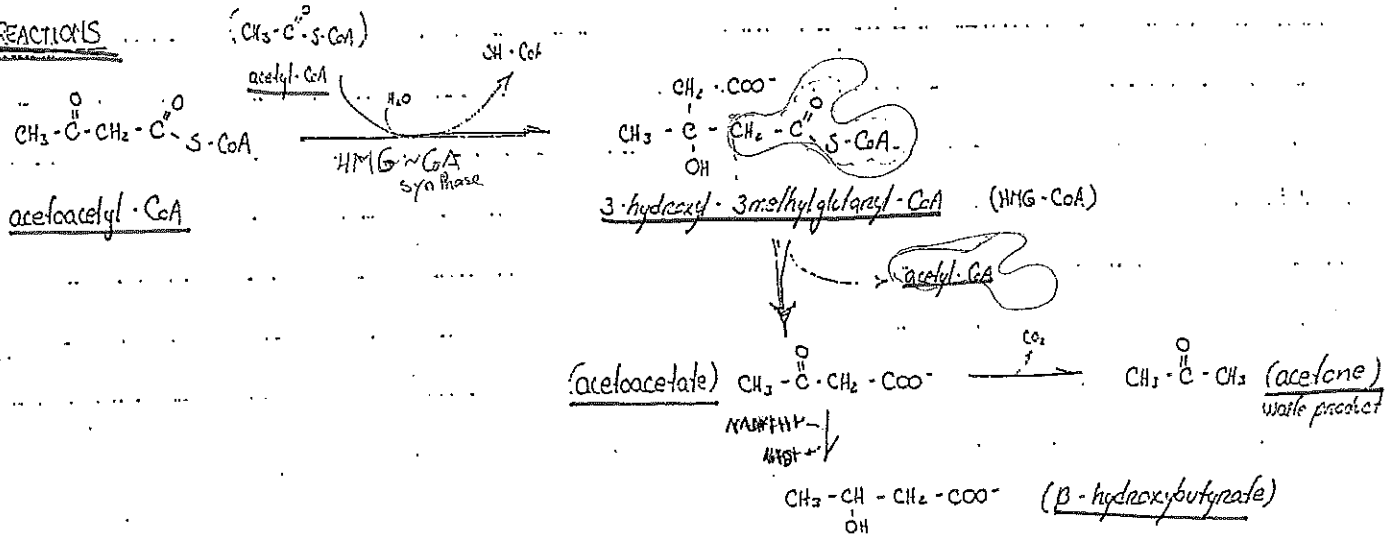 REACTIONS
(CH₃-C-S-CoA)
O
acetyl·CoA
H₂O
SH·CoA
O O
CH₃-C-CH₂-C
S-CoA
HMG~CoA
synthase
acetoacetyl·CoA
CH₂·COO⁻
O
CH₃-C-CH₂-C
S-CoA
OH
3·hydroxy·3methylglutaryl·CoA (HMG-CoA)
acetyl·CoA
CO₂
O
O
(acetoacetate) CH₃-C·CH₂-COO⁻
CH₃-C-CH₃ (acetone)
waste product
CH₃-CH-CH₂-COO⁻ (β-hydroxybutyrate)
OH